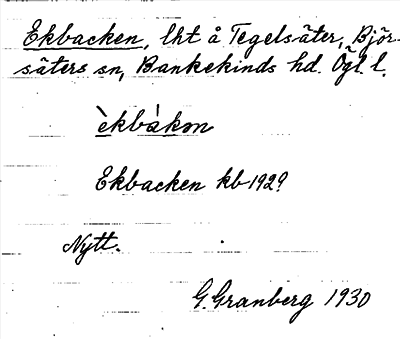 Ekbacken, lht å Tegelsäter, Björ-
säters sn, Bankekinds hd. Ögl. l.
èkbàkon
Ekbacken kb 1929
Nytt.
G. Granberg 1930